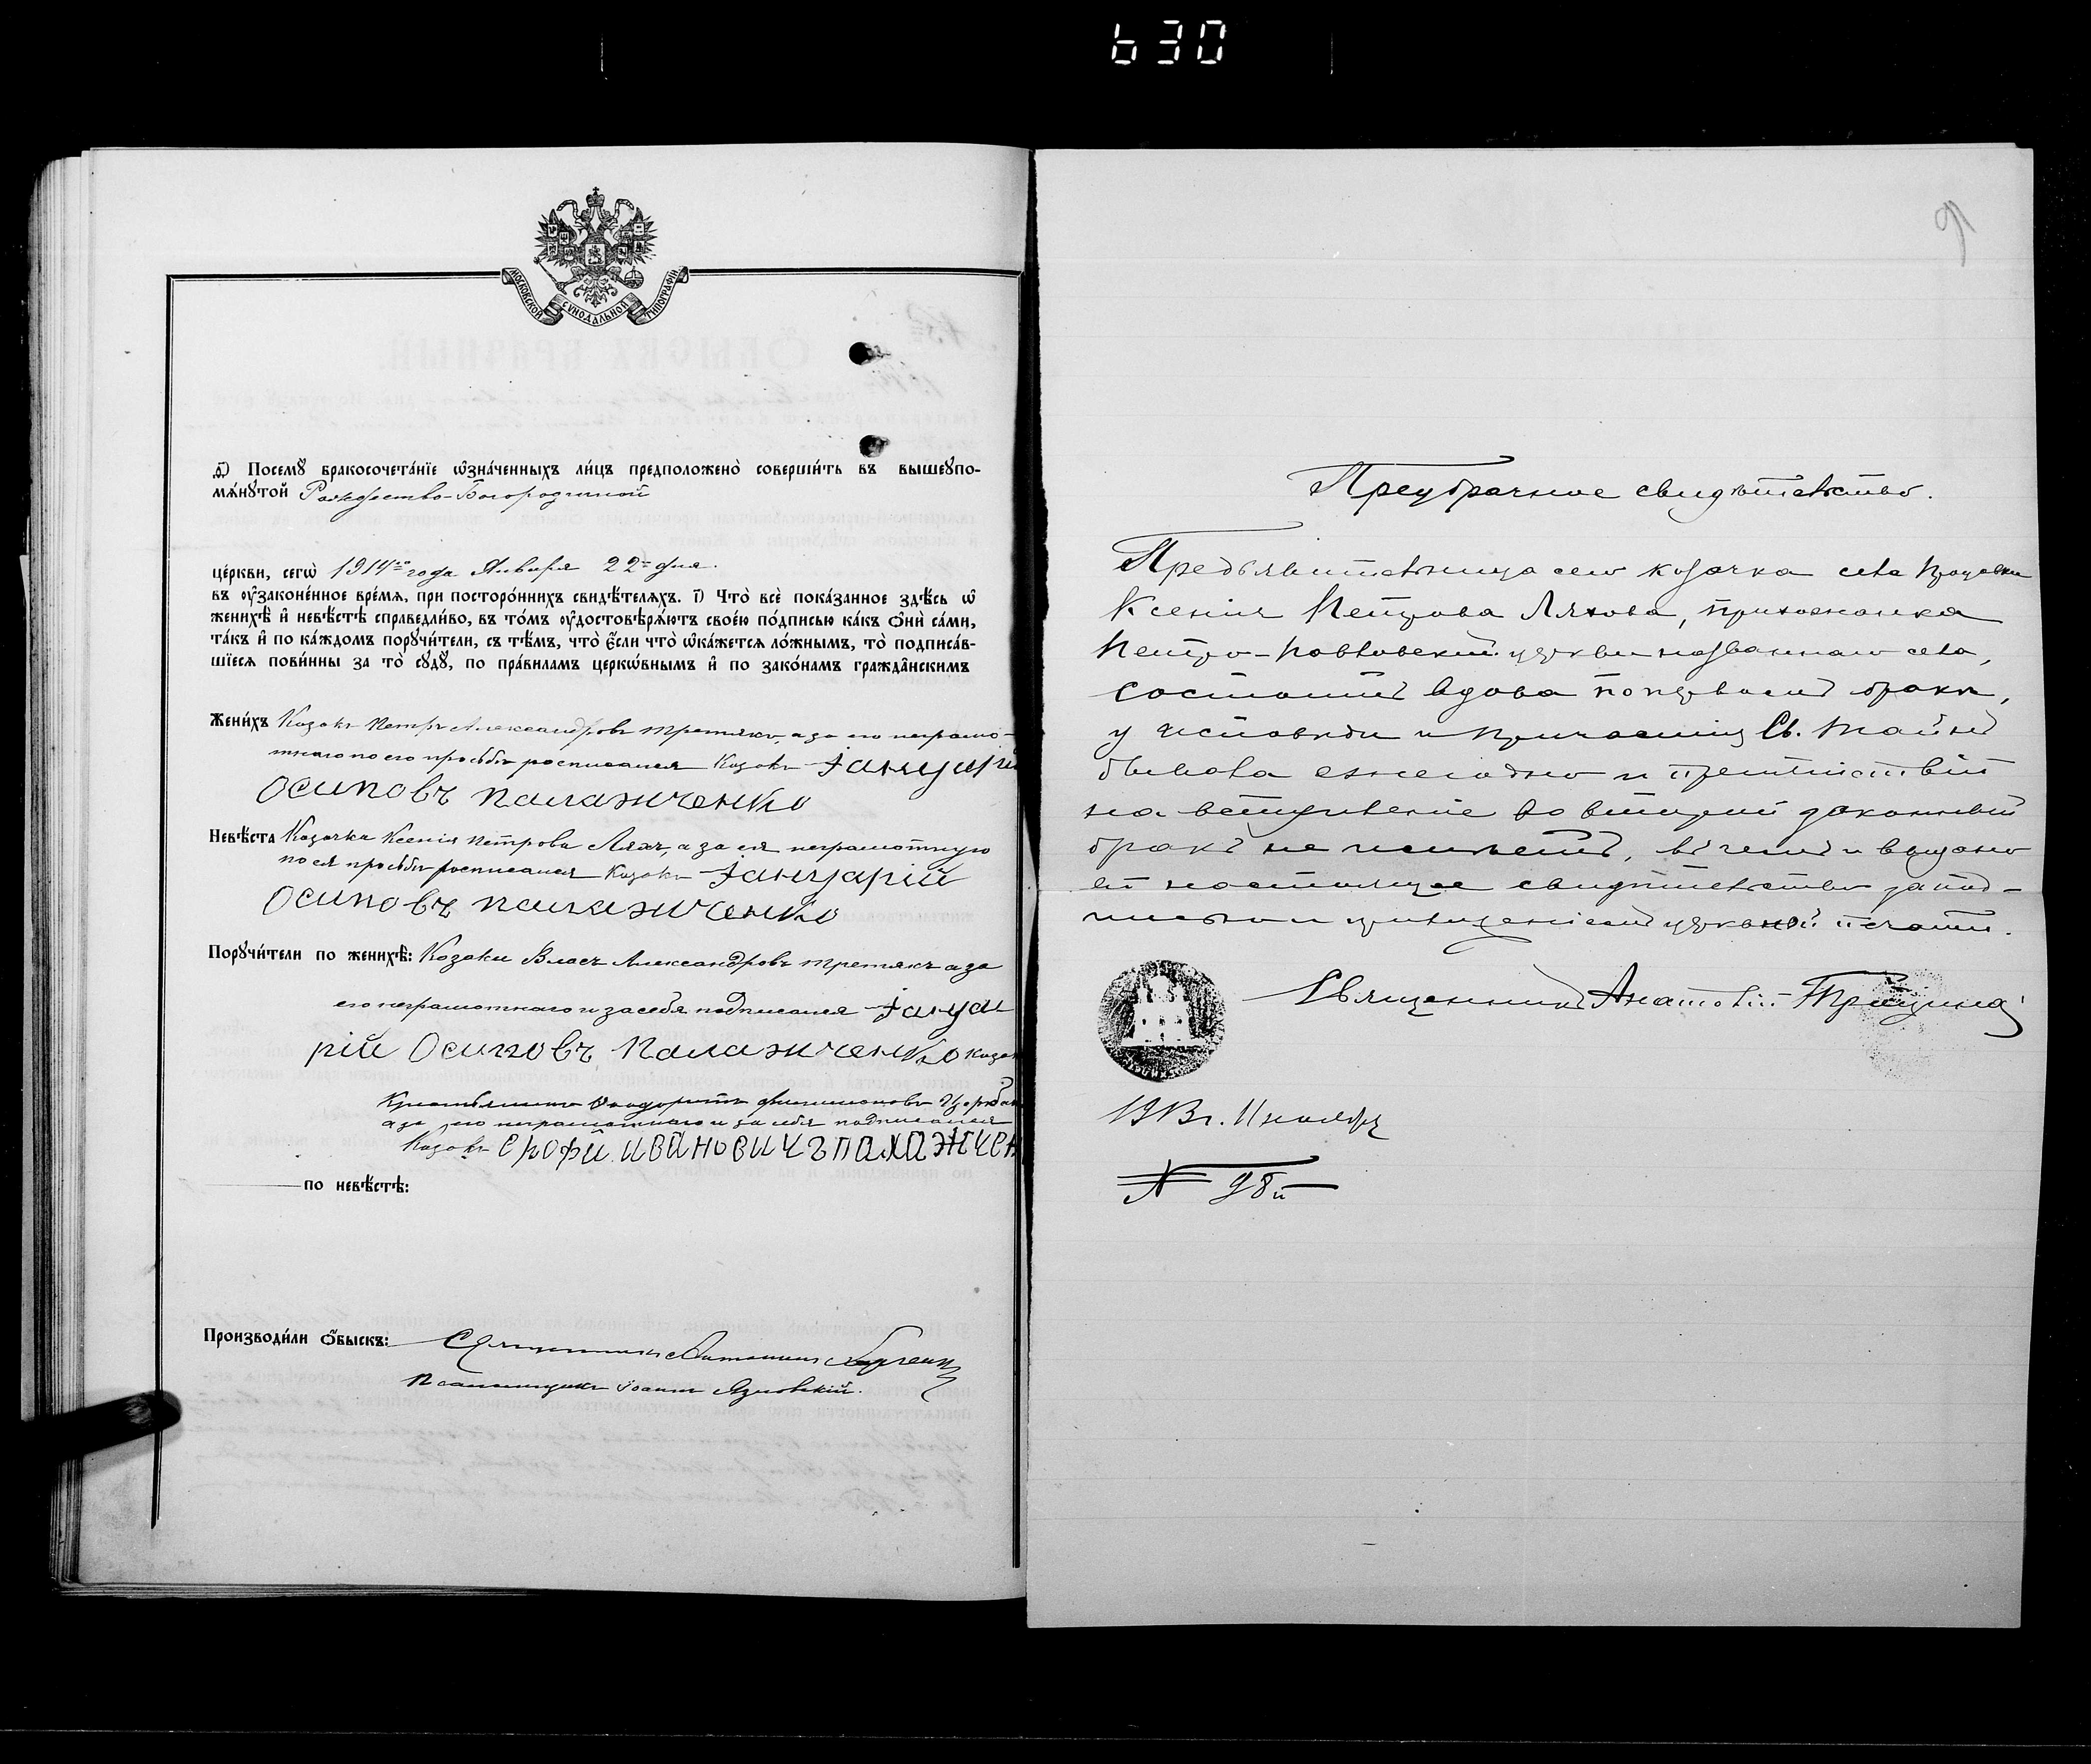 630
МОСКОВСКОЙ СѴНОДАЛЬНОЙ ТИПОГРАФІИ
Посемꙋ̀ бракосочета́нїе ѡ҆зна́ченныхъ ли́цъ предположено̀ соверши́ть въ вышеꙋпо-
мѧ́нꙋтой Рождество-Богородичной
це́ркви, сегѡ̀ 1914го года Января 22го дня.
въ ᲂу҆зако́ненное вре́мѧ, при посторо́ннихъ свидѣ́телѧхъ. і҃) Что̀ всѐ пока́занное здѣ́сь ѡ҆
женихѣ̀ и҆ невѣ́стѣ справедли́во, въ то́мъ ᲂу҆достовѣрѧ́ютъ свое́ю по́дписью ка́къ ѻ҆нѝ са́ми,
та́къ и҆ по ка́ждомъ порꙋчи́тели, съ тѣ́мъ, что̀ є҆́сли что̀ ѡ҆ка́жетсѧ ло́жнымъ, то̀ подписа́в-
шїесѧ пови́нны за то̀ сꙋдꙋ̀, по пра́виламъ церкѡ́внымъ и҆ по зако́намъ гражда̂нскимъ
Жени́хъ Козакъ Петръ Александровъ Третякъ, а за его неграмо-
тнаго по его просьбѣ росписался Козакъ Іануарій
Осиповъ Палажченко
Невѣ́ста Козачка Ксенія Петрова Ляхъ, а за ея неграмотную
по ея просьбѣ росписался Козакъ Іануарій
Осиповъ Палажченко
Порꙋчи́тели по женихѣ̀: Козаки Власъ Александровъ Третякъ а за
его неграмотнаго и за себя подписался Іануа
рій Осиповъ Палажченко
Крестьянинъ
а за его неграмотнаго и за себя подписался
Козакъ Ерофи Ивановичъ Палажчен
по невѣ́стѣ:
Производи́ли ѻ҆́быскъ: Священникъ
Псаломщикъ Іоаннъ
91
Предбрачное свидѣтельство.
Предъявительница сего козачка села
Ксенія Петрова Ляхова, прихожанка
Петро-Павловской церкви названнаго села,
состоитъ вдова по первомъ бракѣ,
у исповѣди и причастія Св. Тайнъ
бывала ежегодно и препятствій
на вступленіе во второй законный
бракъ не имѣетъ, въ чемъ и выдано
ей настоящее свидѣтельство за под-
писью и приложеніемъ церковной печати.
Священникъ Анатолій
1913 г. ноября
№ 98